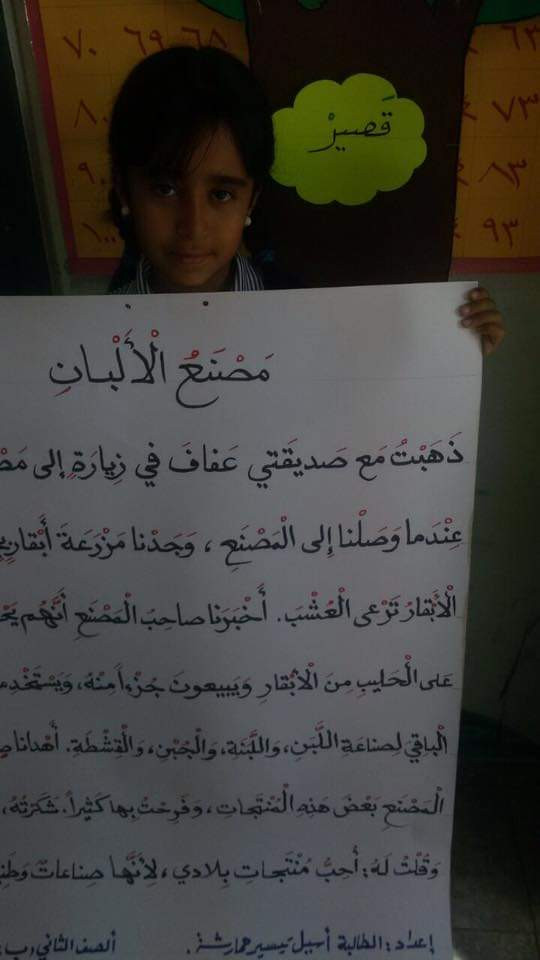 ٦٣ ٦٨ ٦٩ ٧٠
٧٣ ٨٠
٨٣ ٩٠
٩٣ ١٠٠
قَصيرْ
مَصْنَعُ الْأَلْبـانِ
ذَهَبْتُ مَع صَديقَتي عَفافَ في زِيارَةٍ إلى
عِنْدَما وَصَلْنا إِلى الْمَصْنَعِ ، وَجَدْنا مَزْرَعَةَ أَبْقارٍ
الْأَبْقارُ تَرْعى الْعُشْبَ. أَخْبَرَنا صاحِبُ الْمَصْنَعِ أَنَّهُم
عَلى الْحَليبِ مِنَ الْأَبْقارِ وَيَبيعونَ جُزْءاً مِنْهُ، وَيَسْتَخْدِمـ
الْباقِيَ لِصِناعَةِ اللَّبَنِ، وَاللَّبَنَةِ، وَالْجُبْنِ، وَالْقِشْطَةِ. أَهْدانا
الْمَصْنَعِ بَعْضَ هَذِهِ الْمُنْتَجاتِ، وَفَرِحْتُ بِها كَثيراً. شَكَرْتُهُ،
وَقُلْتُ لَهُ: أُحِبُّ مُنْتَجاتِ بِلادي، لِأَنَّها صِناعاتٌ وَطَنِـ
إعداد: الطالبة أسيل تيسير حمارشة. الصف الثاني (ب)